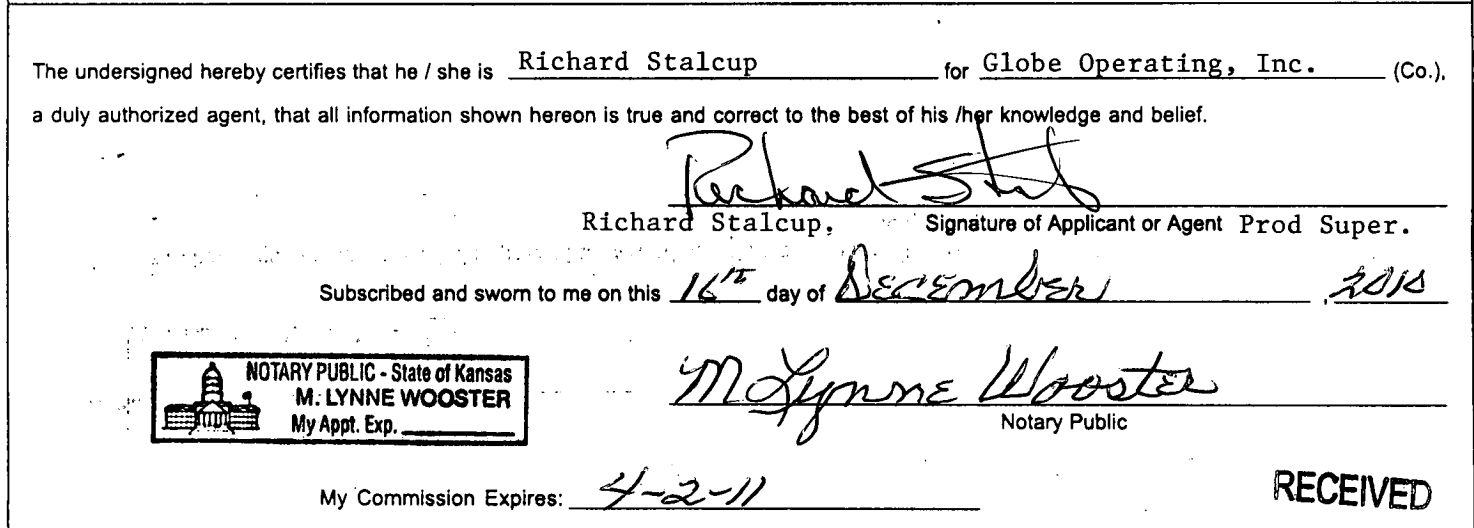 The undersigned hereby certifies that he / she is Richard Stalcup for Globe Operating, Inc. (Co.),
a duly authorized agent, that all information shown hereon is true and correct to the best of his /her knowledge and belief.
Richard Stalcup
Richard Stalcup, Signature of Applicant or Agent Prod Super.
Subscribed and sworn to me on this 16th day of December , 2010
NOTARY PUBLIC - State of Kansas
M. LYNNE WOOSTER
My Appt. Exp.
M Lynne Wooster
Notary Public
My Commission Expires: 4-2-11
RECEIVED